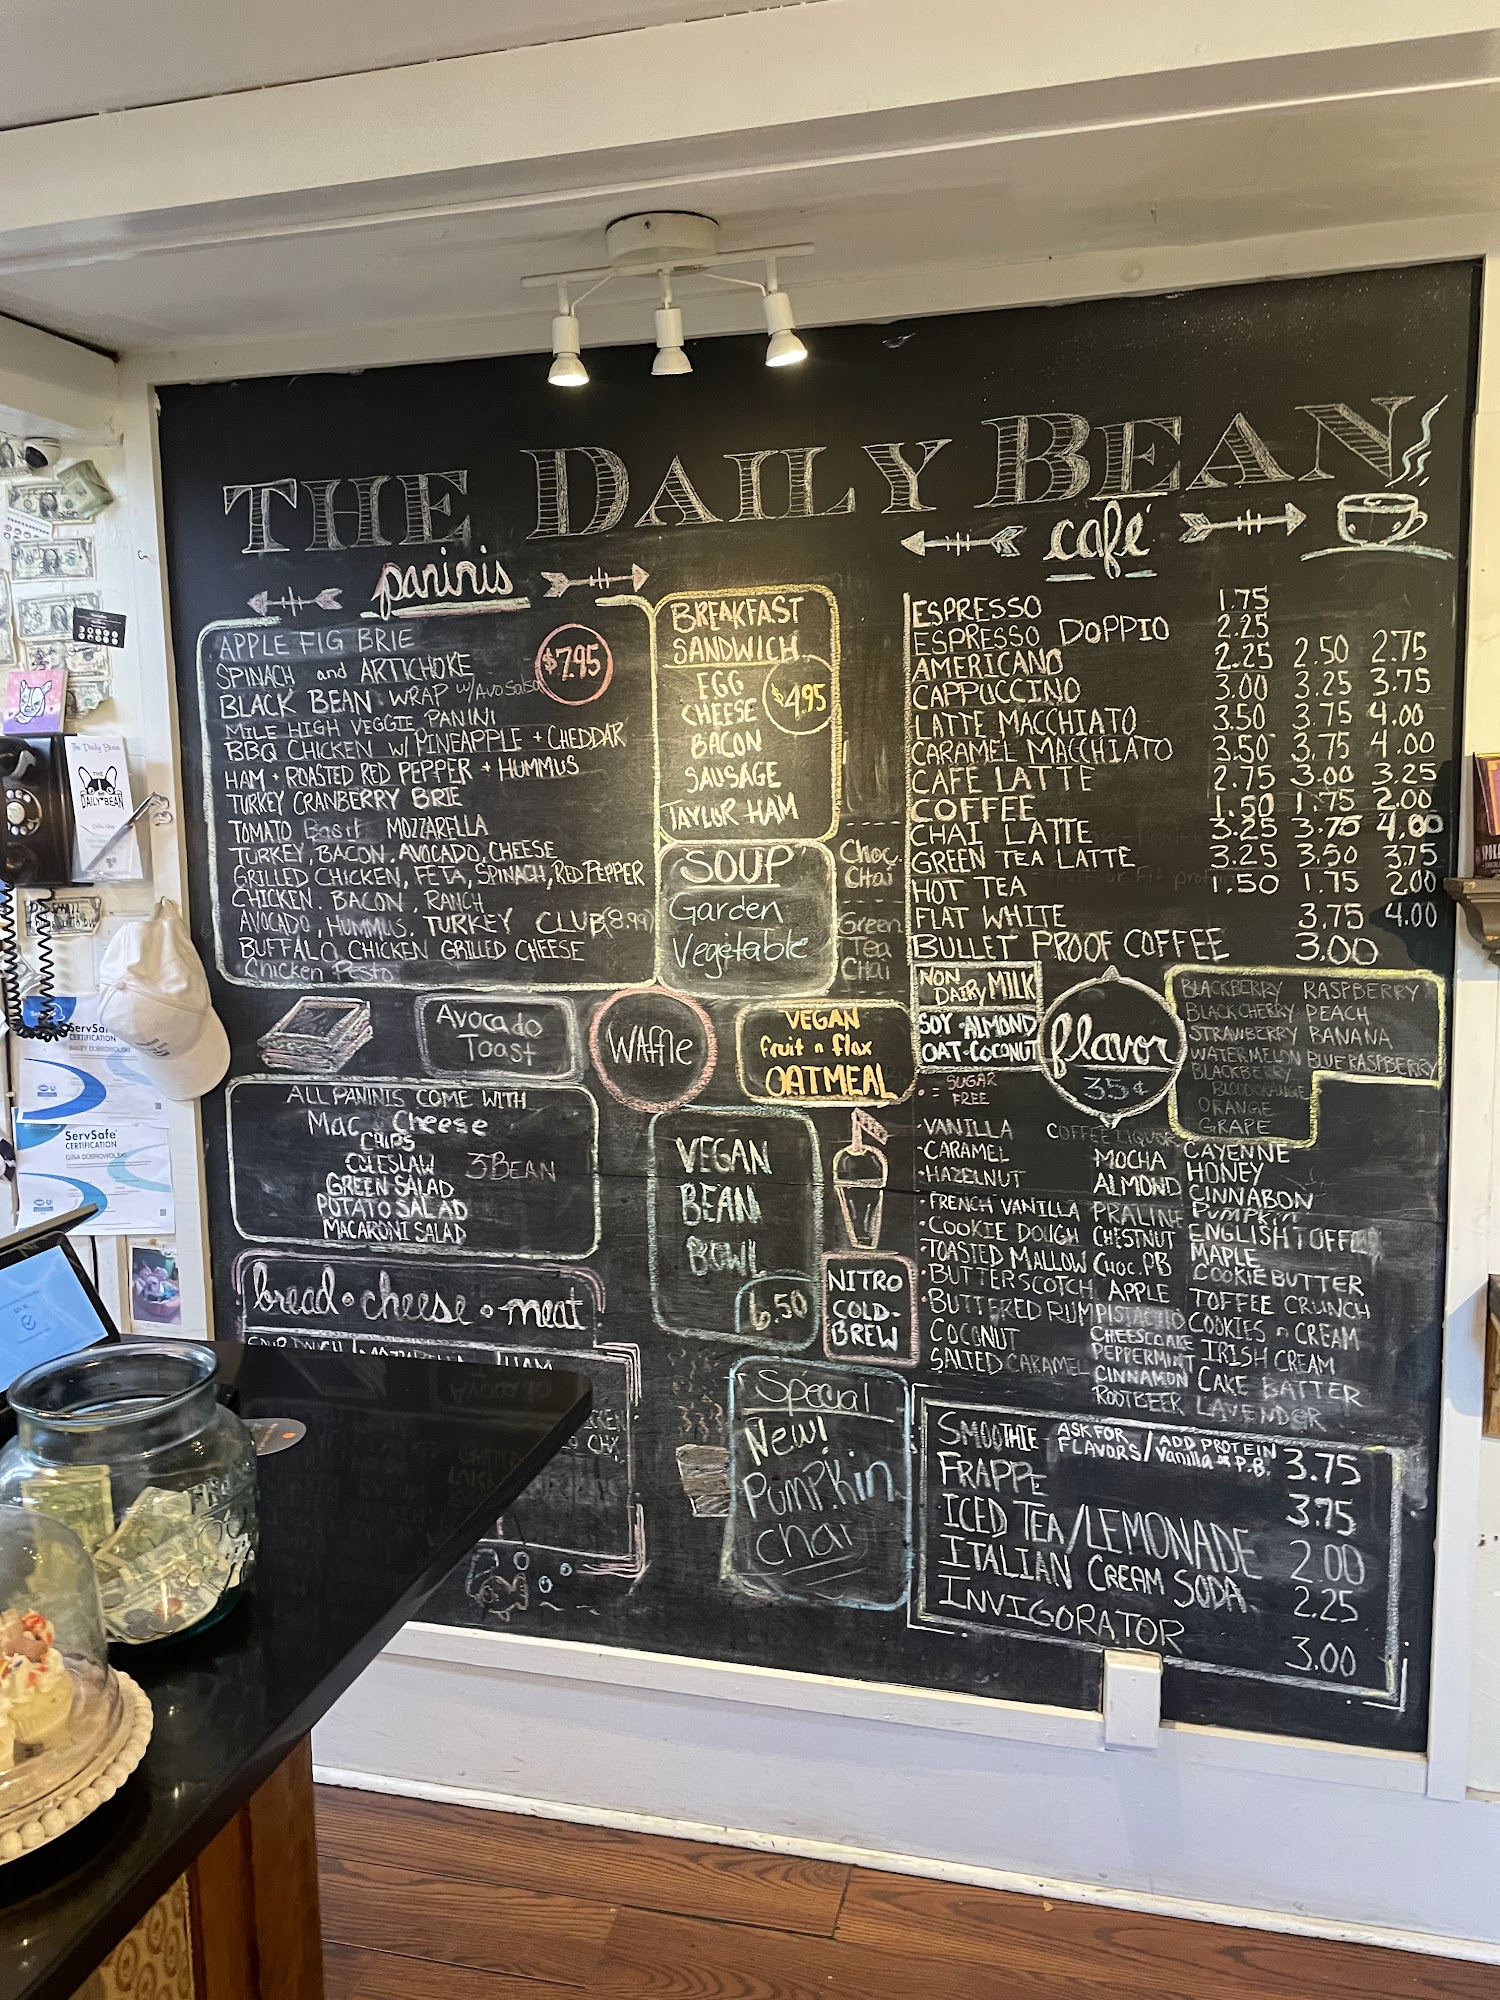 THE DAILY BEAN
paninis
APPLE FIG BRIE
SPINACH and ARTICHOKE
$7.95
BLACK BEAN WRAP w/Avo Salsa
MILE HIGH VEGGIE PANINI
BBQ CHICKEN W/ PINEAPPLE + CHEDDAR
HAM + ROASTED RED PEPPER + HUMMUS
TURKEY CRANBERRY BRIE
TOMATO Basil MOZZARELLA
TURKEY, BACON, AVOCADO, CHEESE
GRILLED CHICKEN, FETA, SPINACH, RED PEPPER
CHICKEN, BACON, RANCH
AVOCADO, HUMMUS, TURKEY CLUB (8.99)
BUFFALO CHICKEN GRILLED CHEESE
Chicken Pesto
BREAKFAST
SANDWICH
EGG
CHEESE
$4.95
BACON
SAUSAGE
TAYLOR HAM
SOUP
Garden
Vegetable
Choc.
Chai
Green
Tea
Chai
café
ESPRESSO 1.75
ESPRESSO DOPPIO 2.25
AMERICANO 2.25 2.50 2.75
CAPPUCCINO 3.00 3.25 3.75
LATTE MACCHIATO 3.50 3.75 4.00
CARAMEL MACCHIATO 3.50 3.75 4.00
CAFE LATTE 2.75 3.00 3.25
COFFEE 1.50 1.75 2.00
CHAI LATTE 3.25 3.75 4.00
GREEN TEA LATTE 3.25 3.50 3.75
HOT TEA 1.50 1.75 2.00
FLAT WHITE 3.75 4.00
BULLET PROOF COFFEE 3.00
Avocado
Toast
WAffle
VEGAN
fruit n flax
OATMEAL
NON
DAIRY MILK
SOY-ALMOND
OAT-COCONUT
• = SUGAR
FREE
flavor
35¢
BLACKBERRY RASPBERRY
BLACK CHERRY PEACH
STRAWBERRY BANANA
WATERMELON BLUE RASPBERRY
BLACKBERRY
BLOOD ORANGE
ORANGE
GRAPE
ALL PANINIS COME WITH
Mac & Cheese
CHIPS
COLESLAW 3 BEAN
GREEN SALAD
POTATO SALAD
MACARONI SALAD
VEGAN
BEAN
BOWL
6.50
NITRO
COLD-
BREW
•VANILLA
•CARAMEL
•HAZELNUT
•FRENCH VANILLA
•COOKIE DOUGH
•TOASTED MALLOW
•BUTTERSCOTCH
•BUTTERED RUM
COCONUT
SALTED CARAMEL
COFFEE LIQUOR
MOCHA
ALMOND
PRALINE
CHESTNUT
CHOC. PB
APPLE
PISTACHIO
CHEESECAKE
PEPPERMINT
CINNAMON
ROOTBEER
CAYENNE
HONEY
CINNABON
PUMPKIN
ENGLISH TOFFEE
MAPLE
COOKIE BUTTER
TOFFEE CRUNCH
COOKIES n CREAM
IRISH CREAM
CAKE BATTER
LAVENDER
bread • cheese • meat
HAM
CHX
Special
New!
Pumpkin
chai
SMOOTHIE ASK FOR FLAVORS / ADD PROTEIN Vanilla or P.B. 3.75
FRAPPE 3.75
ICED TEA/LEMONADE 2.00
ITALIAN CREAM SODA 2.25
INVIGORATOR 3.00
The Daily Bean
THE
DAILY BEAN
ServSafe
CERTIFICATION
BAILEY DOBROWOLSKI
ServSafe
CERTIFICATION
GINA DOBROWOLSKI